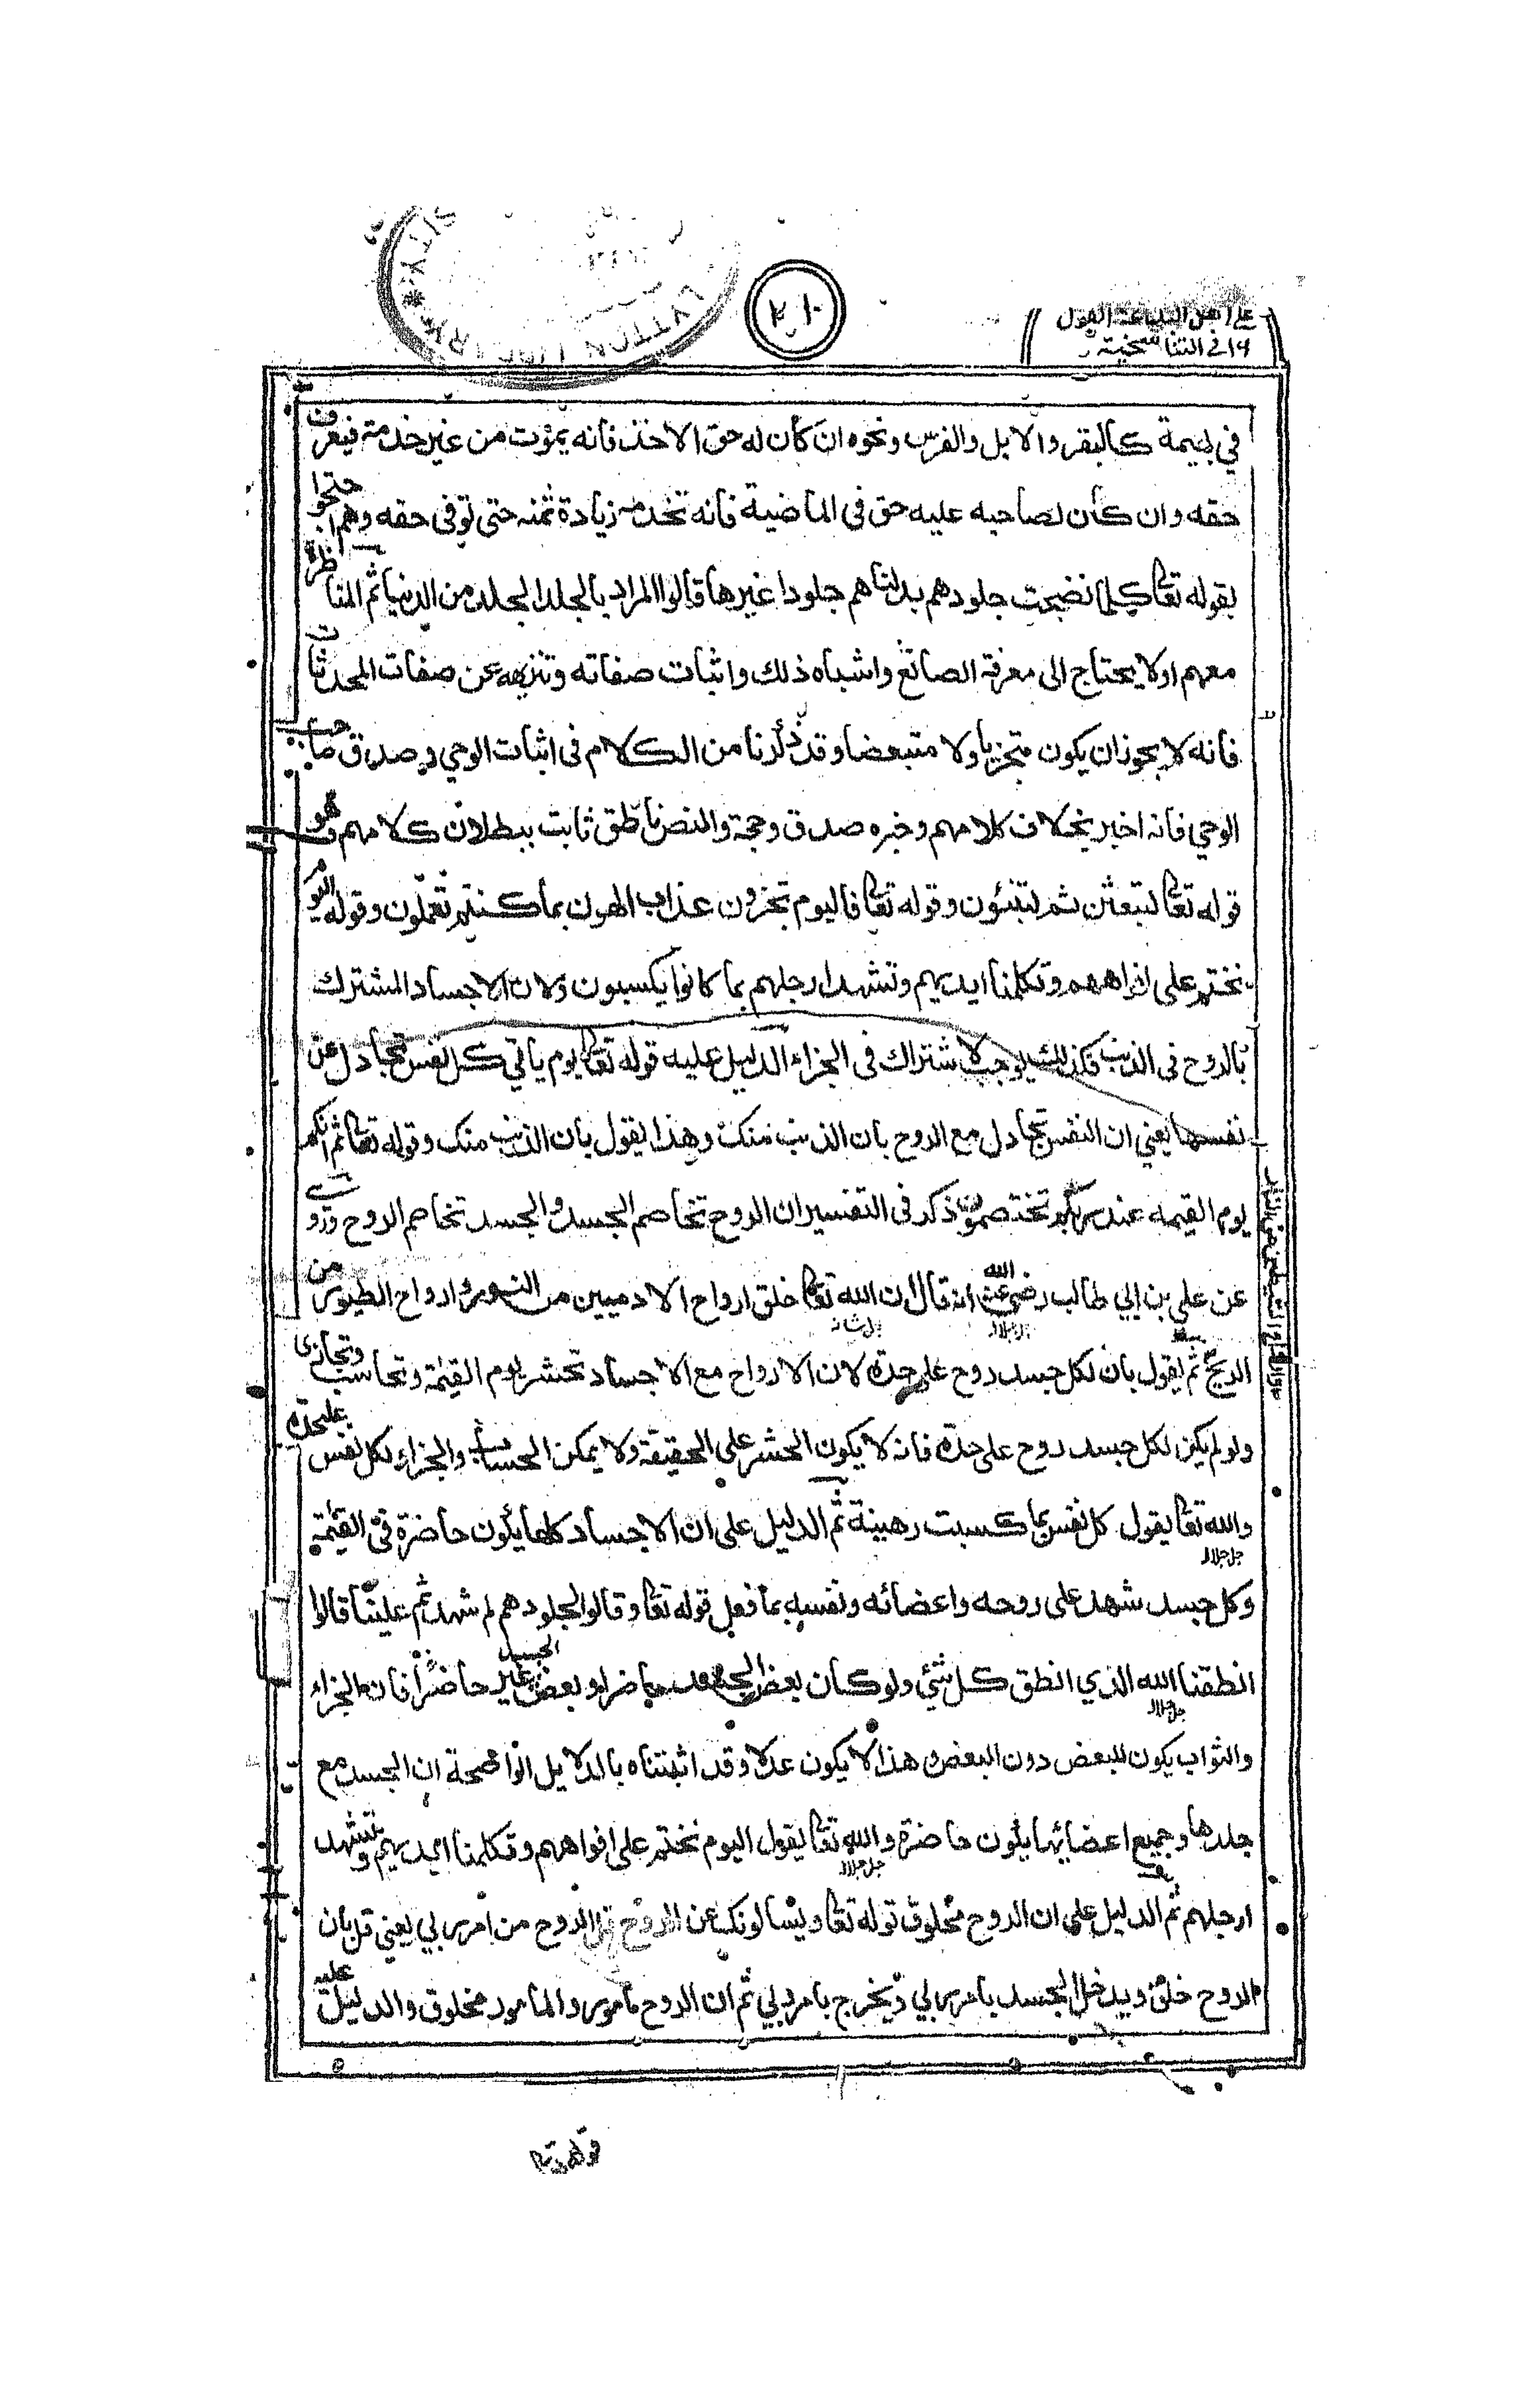 ٢١٠
على اهل البدعة القول
في التناسخية
في بهيمة كالبقر والابل والفرس ونحوه ان كان له حق الاخذ فانه يموت من غير خدمة فيعرف
حقه وان كان لصاحبه عليه حق في الماضية فانه تخدمه زيادة ثمنه حتى توفى حقه وهم احتجوا
بقوله تعا كلما نضجت جلودهم بدلناهم جلودا غيرها قالوا المراد بالجلد الجلد من الدنيا ثم المناظرة
معهم اولا يحتاج الى معرفة الصانع واشباه ذلك واثبات صفاته وتنزيهه عن صفات المحدثات
فانه لا يجوز ان يكون متجزيا ولا متبعضا وقد ذكرنا من الكلام في اثبات الوحي وصدق صاحب
الوحي فانه اخبر بخلاف كلامهم وخبره صدق وحجة والنص ناطق ثابت ببطلان كلامهم وهو
قوله تعا لتبعثن ثم لتنبئون وقوله تعا فاليوم تجزون عذاب الهون بما كنتم تعملون وقوله اليوم
نختم على افواههم وتكلمنا ايديهم وتشهد ارجلهم بما كانوا يكسبون ولان الاجساد المشترك
بالروح في الذنب فكذلك يوجب لاشتراك في الجزاء الدليل عليه قوله تعا يوم يأتي كل نفس تجادل عن
نفسها يعني ان النفس تجادل مع الروح بان الذنب منك وهذا يقول بان الذنب منك وقوله تعا ثم انكم
يوم القيمة عند ربكم تختصمون ذكر في التفسير ان الروح تخاصم الجسد والجسد تخاصم الروح وروي
عن علي بن ابي طالب رضي الله عنه انه قال ان الله تعا خلق ارواح الادميين من النور وارواح الطيور من
الريح ثم يقول بان لكل جسد روح على حدة لان الارواح مع الاجساد تحشر يوم القيمة وتحاسب وتجازى
ولو لم يكن لكل جسد روح على حدة فانه لا يكون الحشر على الحقيقة ولا يمكن الحساب والجزاء لكل نفس عليحدة
والله تعا يقول كل نفس بما كسبت رهينة ثم الدليل على ان الاجساد كلها يكون حاضرة في القيمة
جل جلاله
وكل جسد شهد على روحه واعضائه ونفسه بما فعل قوله تعا وقالوا لجلودهم لم شهدتم علينا قالوا
انطقنا الله الذي انطق كل شئ ولو كان بعض الجسد حاضرا وبعض الجسد غير حاضرا فان الجزاء
جل جلاله
والثواب يكون للبعض دون البعض وهذا لا يكون عدلا وقد اثبتناه بالدلايل الواضحة ان الجسد مع
جلدها وجميع اعضائها يكون حاضرة والله تعا يقول اليوم نختم على افواههم وتكلمنا ايديهم وتشهد
جل جلاله
ارجلهم ثم الدليل على ان الروح مخلوق قوله تعا ويسألونك عن الروح قل الروح من امر ربي يعني قل بان
الروح خلق ويدخل الجسد بامر ربي ويخرج بامر ربي ثم ان الروح مامور والمأمور مخلوق والدليل عليه
قوله تعا